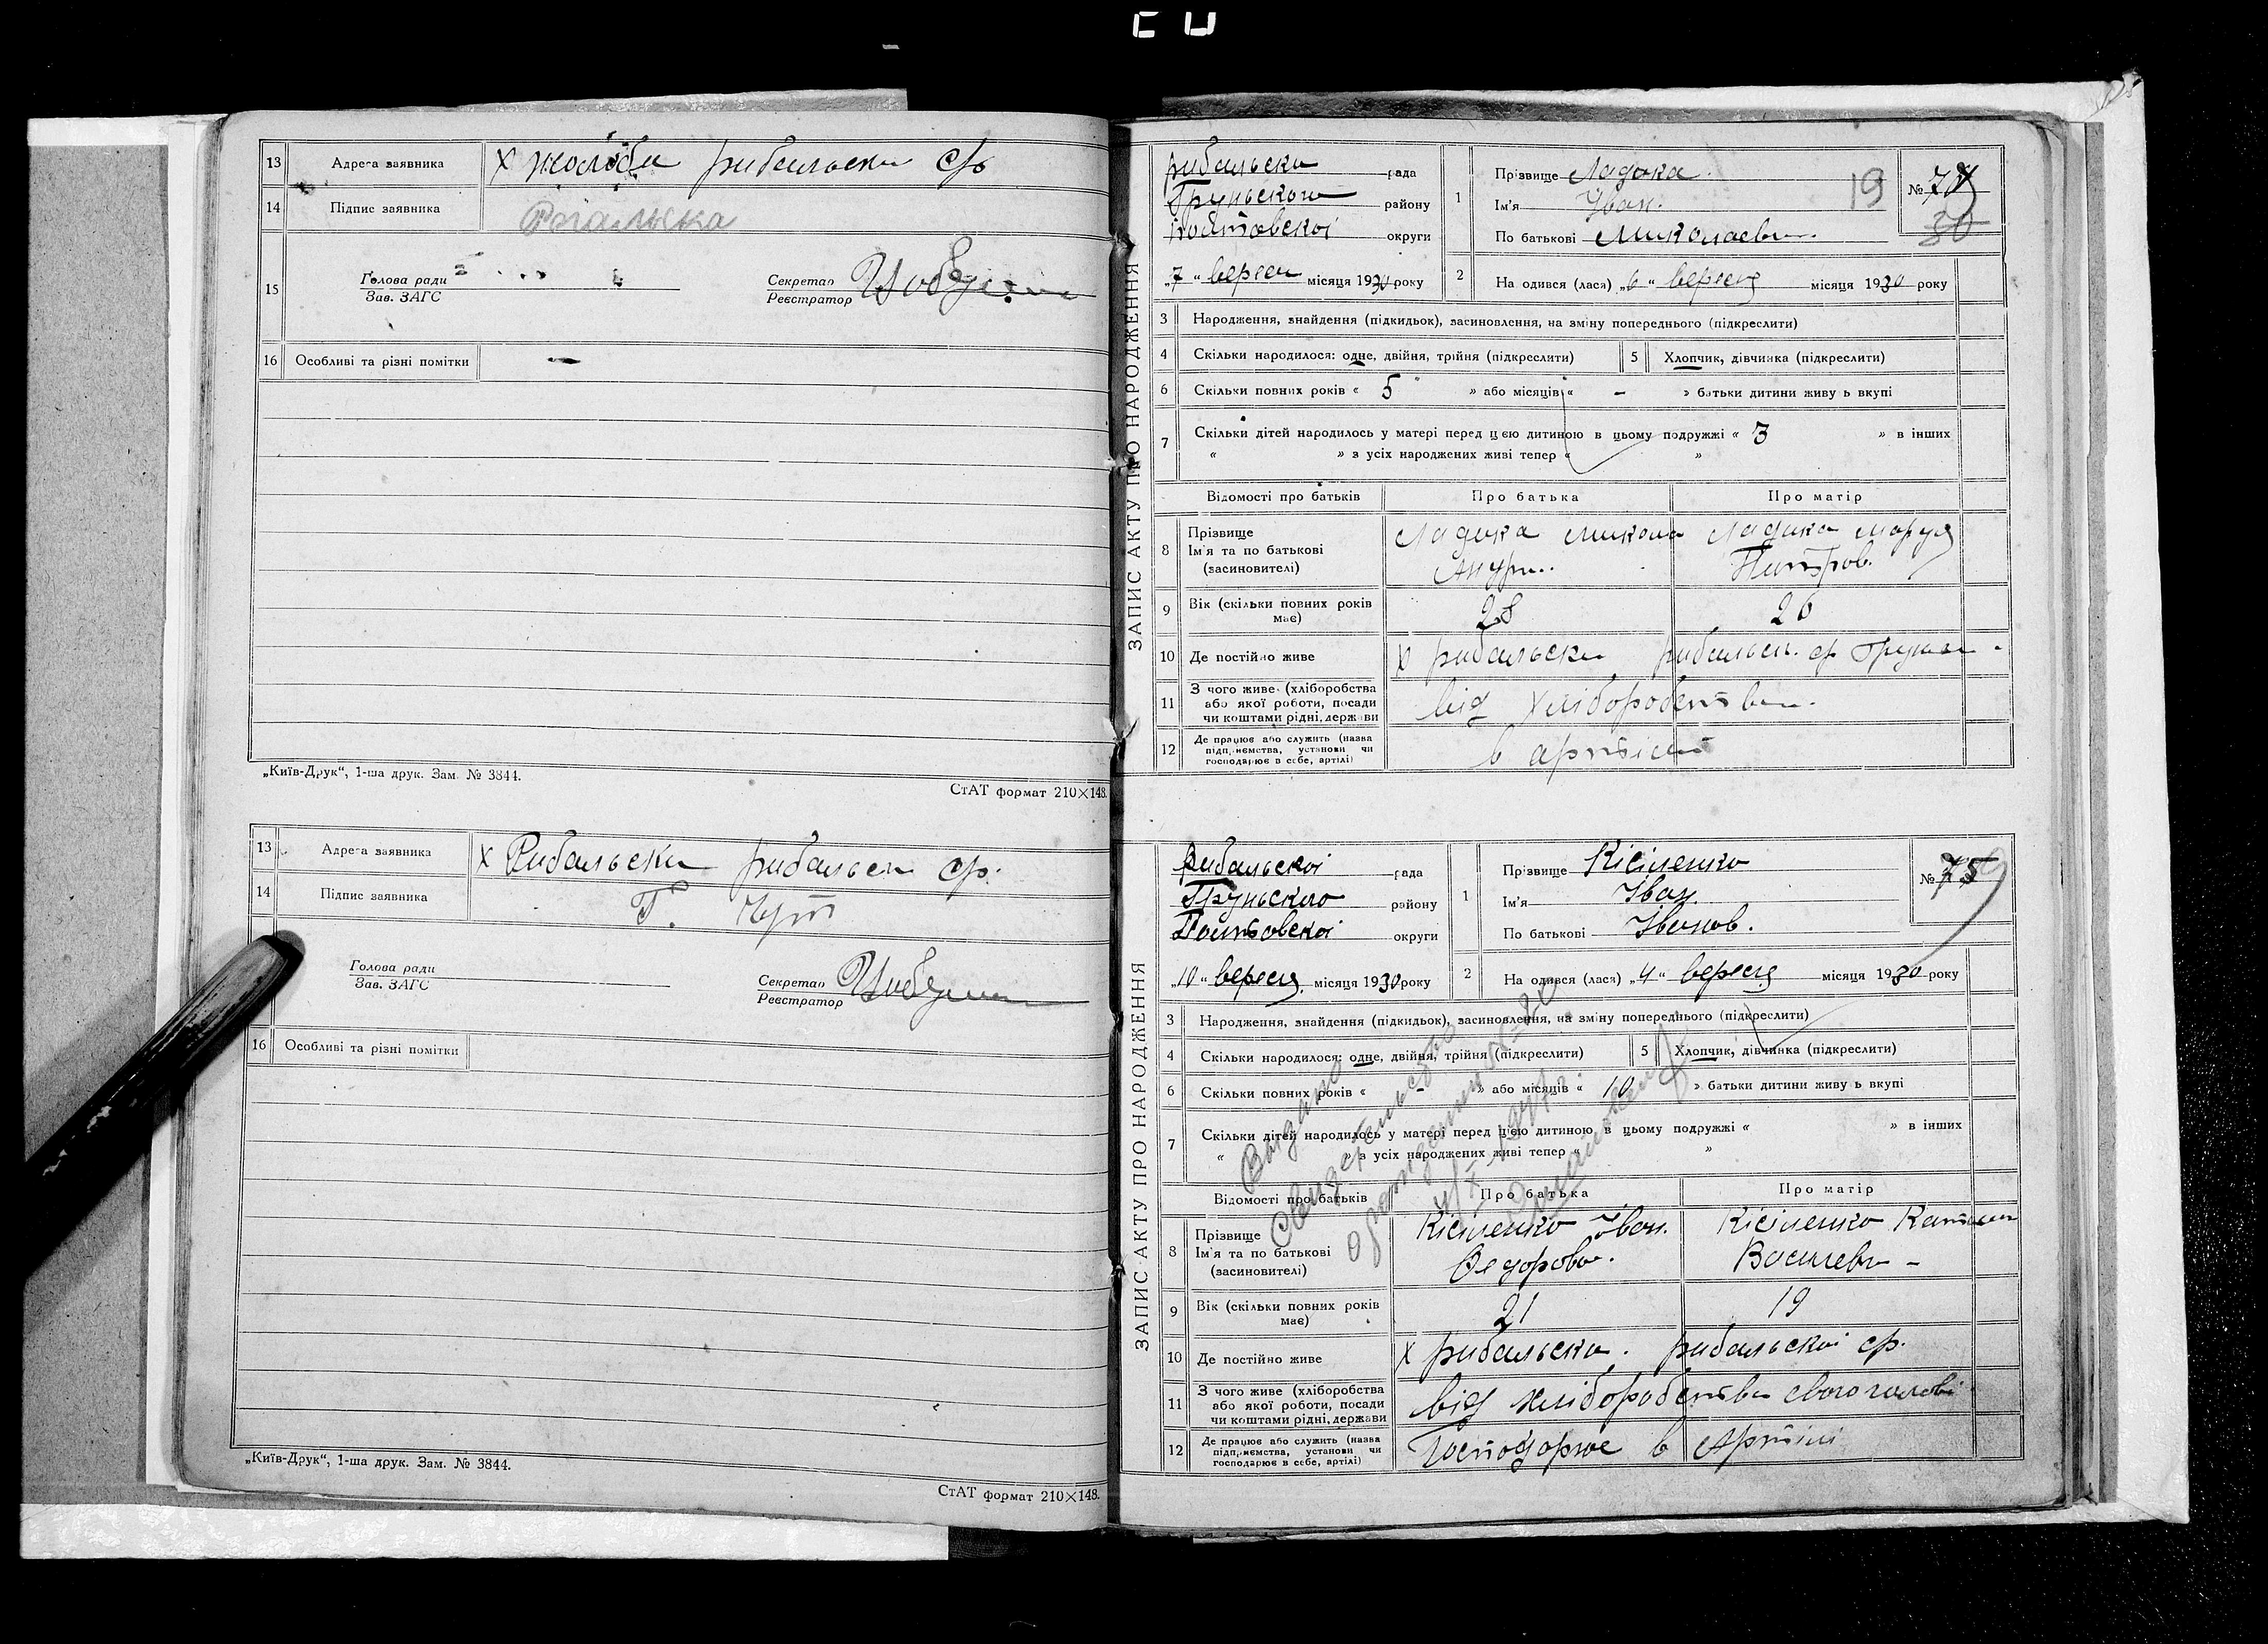 13 Адреса заявника х рибальски ср
14 Підпис заявника Рогальська
15 Голова ради
Зав. ЗАГС
Секретар
Реєстратор
16 Особливі та різні помітки
„Київ-Друк“, 1-ша друк. Зам. № 3844.
СтАТ формат 210×148.
13 Адреса заявника х Рибальски рибальськ ср.
14 Підпис заявника Г.
Голова ради
Зав. ЗАГС
Секретар
Реєстратор
16 Особливі та різні помітки
„Київ-Друк“, 1-ша друк. Зам. № 3844.
СтАТ формат 210×148.
ЗАПИС АКТУ ПРО НАРОДЖЕННЯ
рибальска рада
Груньского району
Полтовскої округи
„7“ вересн місяця 1930 року
1 Прізвище Ладика
Ім'я Іван.
По батькові Миколаеви.
19
№
30
2 На одився (лася) „6“ вересня місяця 1930 року
3 Народження, знайдення (підкидьок), засиновлення, на зміну попереднього (підкреслити)
4 Скільки народилося: одне, двійня, трійня (підкреслити) 5 Хлопчик, дівчинка (підкреслити)
6 Скільки повних років « 5 » або місяців « - » батьки дитини живуть вкупі
7 Скільки дітей народилось у матері перед цією дитиною в цьому подружжі « 3 » в інших
« » з усіх народжених живі тепер « »
Відомості про батьків Про батька Про матір
8 Прізвище
Ім'я та по батькові
(засиновителі)
Ладика Микола
Ладика Маруся
9 Вік (скільки повних років має) 28 26
10 Де постійно живе х рибальски рибальск. ср
11 З чого живе (хліборобства
або якої роботи, посади
чи коштами рідні, держави
від хліборобства.
12 Де працює або служить (назва
підприємства, установи чи
господарює в себе, артілі)
в артілі
ЗАПИС АКТУ ПРО НАРОДЖЕННЯ
Рибальскої рада
Груньского району
Полтовскої округи
„10“ вересня місяця 1930 року
1 Прізвище Кісіленко
Ім'я Іван.
По батькові Іванов.
№ 75
2 На одився (лася) „4“ вересня місяця 1930 року
3 Народження, знайдення (підкидьок), засиновлення, на зміну попереднього (підкреслити)
4 Скільки народилося: одне, двійня, трійня (підкреслити) 5 Хлопчик, дівчинка (підкреслити)
6 Скільки повних років « - » або місяців « 10 » батьки дитини живуть вкупі
7 Скільки дітей народилось у матері перед цією дитиною в цьому подружжі « » в інших
« » з усіх народжених живі тепер « »
Выдано
Свидетельство
о рождении
Відомості про батьків Про батька Про матір
8 Прізвище
Ім'я та по батькові
(засиновителі)
Кісіленко Іван.
Федорови.
Кісіленко
Василевн
9 Вік (скільки повних років має) 21 19
10 Де постійно живе х рибальски. рибальскої ср.
11 З чого живе (хліборобства
або якої роботи, посади
чи коштами рідні, держави
від хліборобства
12 Де працює або служить (назва
підприємства, установи чи
господарює в себе, артілі)
Господарює в Артілі